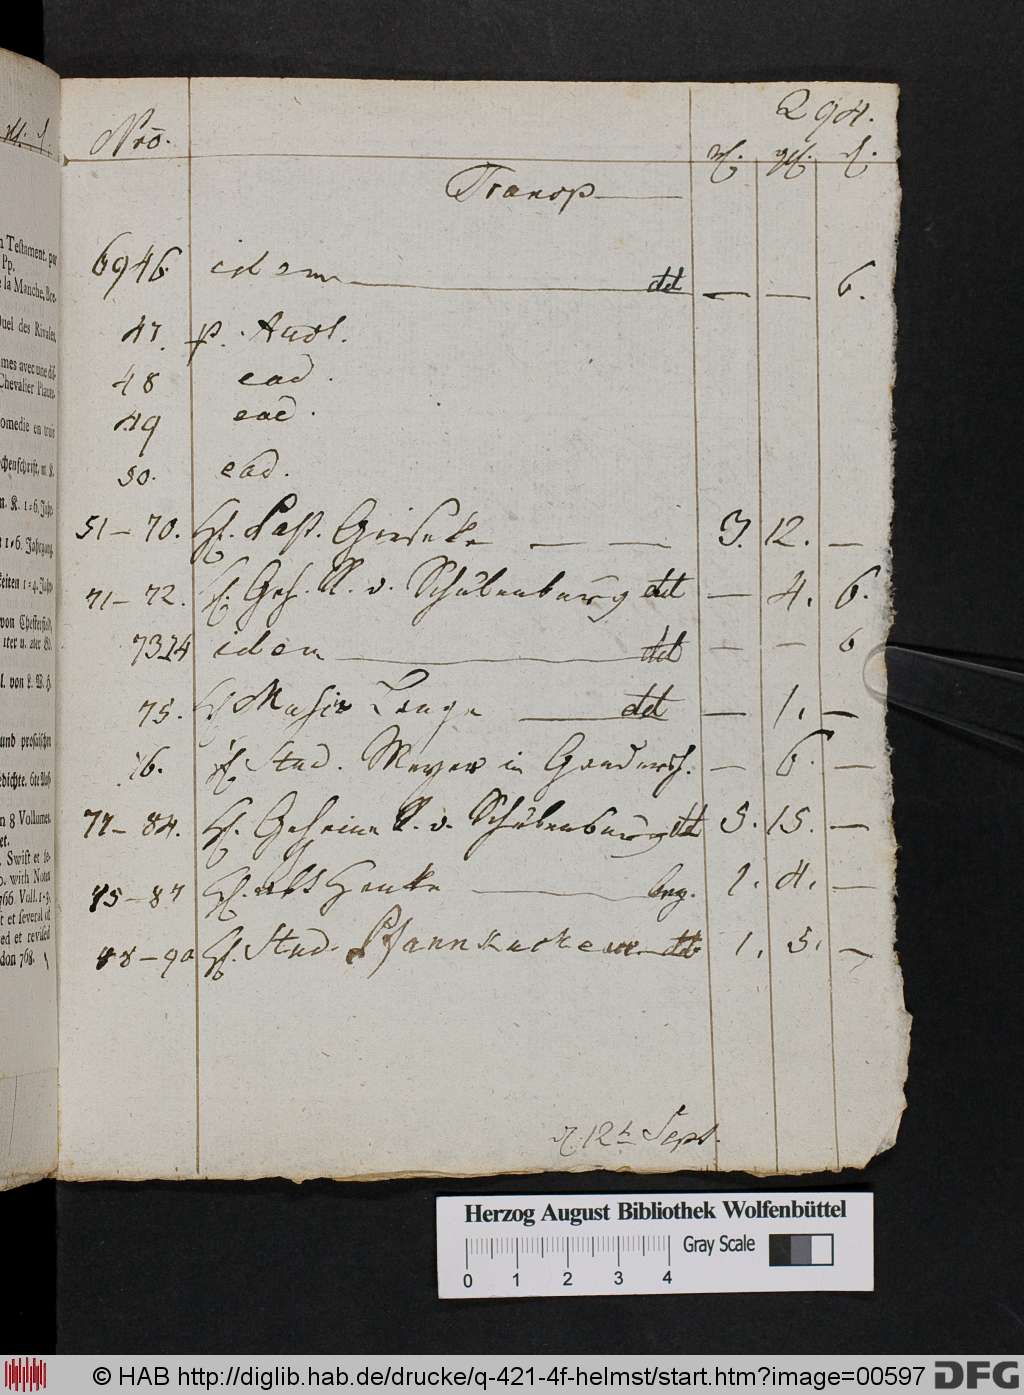 294.
Nro.
rl. ggl. d.
Transp
6946. idem dd — — 6.
47. p. Auct.
48 ead.
49 ead.
50. ead.
51 – 70. H. Past. Gieseke — — 3. 12. —
71 – 72. H. Geh. R. v. Schulenburg dd — 4. 6.
73 74 idem dd — — 6
75. H Lange dd — 1. —
76. H Stud. Meyer in Gandersh. — 6. —
77 – 84. H. Geheime R. v. Schulenburg dd 5. 15. —
85 – 87 H. Abt Henke 1. 4. —
88 – 90 H. Stud. Pfannkuchen dd 1. 5. —
d. 12t Sept.
n Testament. par
Pp.
e la Manche, Bre-
Duel des Rivales,
mes avec une dis-
Chevalier Plaute.
omedie en trois
chenschrift, m. K.
m. K. 1=6. Jahr-
t 1=6. Jahrgang.
keiten 1=4. Jahr-
von Chesterfield,
1ter u. 2ter Bd.
l. von L. W. H.
und prosaischen
edichte. 6te Aufl.
n 8 Volumes.
et.
. Swift et se-
o. with Notes
766 Voll. 1-3.
t et several of
ed et revised
don 768.
Herzog August Bibliothek Wolfenbüttel
Gray Scale
0 1 2 3 4
© HAB http://diglib.hab.de/drucke/q-421-4f-helmst/start.htm?image=00597
DFG